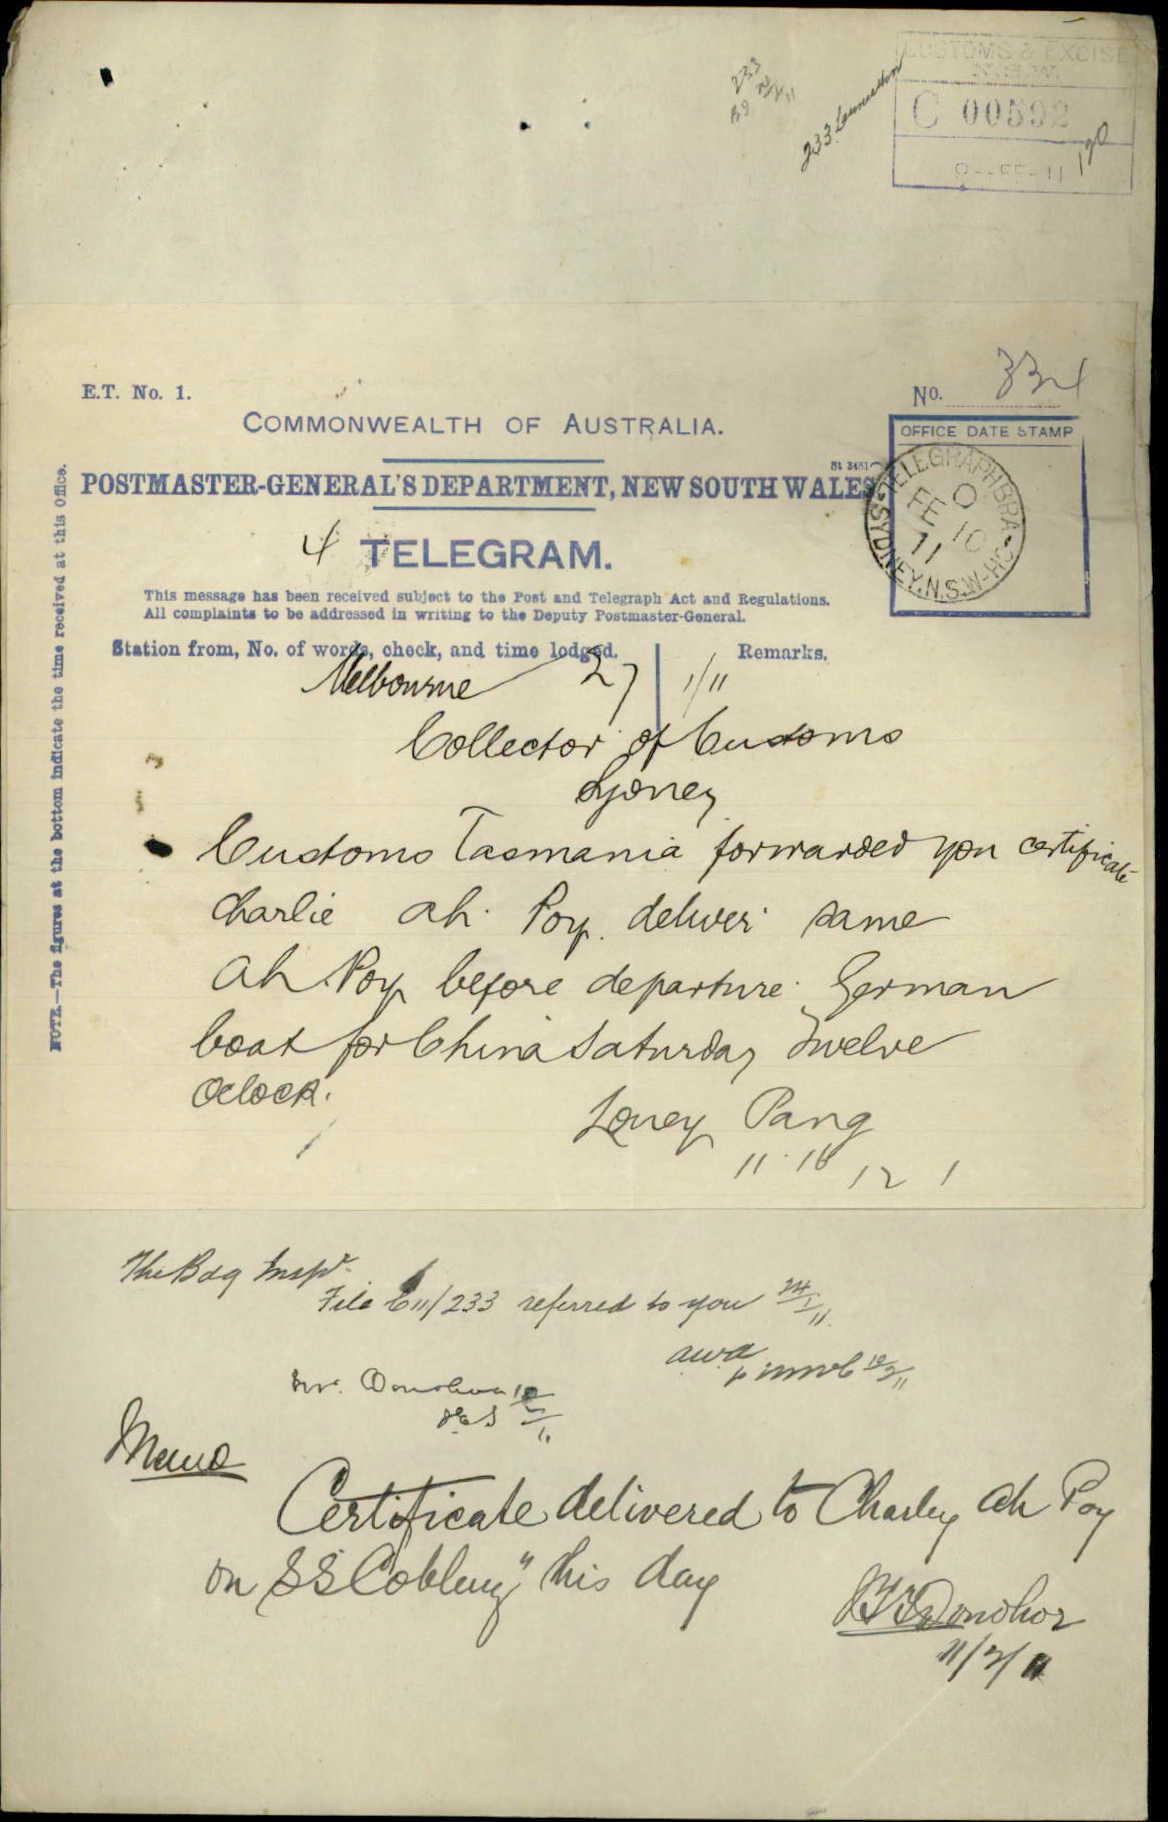 CUSTOMS & EXCISE
N.S.W.
C 00592
233
233 Launceston
E.T. No. 1.
No. 334
COMMONWEALTH OF AUSTRALIA.
OFFICE DATE STAMP
POSTMASTER-GENERAL'S DEPARTMENT, NEW SOUTH WALES
TELEGRAPH BRA
SYDNEY. N.S.W-HC
FE 10
11
4 TELEGRAM.
This message has been received subject to the Post and Telegraph Act and Regulations.
All complaints to be addressed in writing to the Deputy Postmaster-General.
Station from, No. of words, check, and time lodged.
Remarks.
Melbourne 27 1/11
Collector of Customs
Sydney
Customs Tasmania forwarded you certificate
Charlie Ah Poy deliver same
Ah Poy before departure German
boat for China Saturday Twelve
Oclock.
Loney Pang
11.16 12 1
NOTE.—The figures at the bottom indicate the time received at this Office.
The Bdg Inspr.
File C11/233 referred to you 24/1/11.
Mr. Donohoe
Memo
Certificate delivered to Charley Ah Poy
on SS "Coblenz" this day
Donohoe
11/2/11